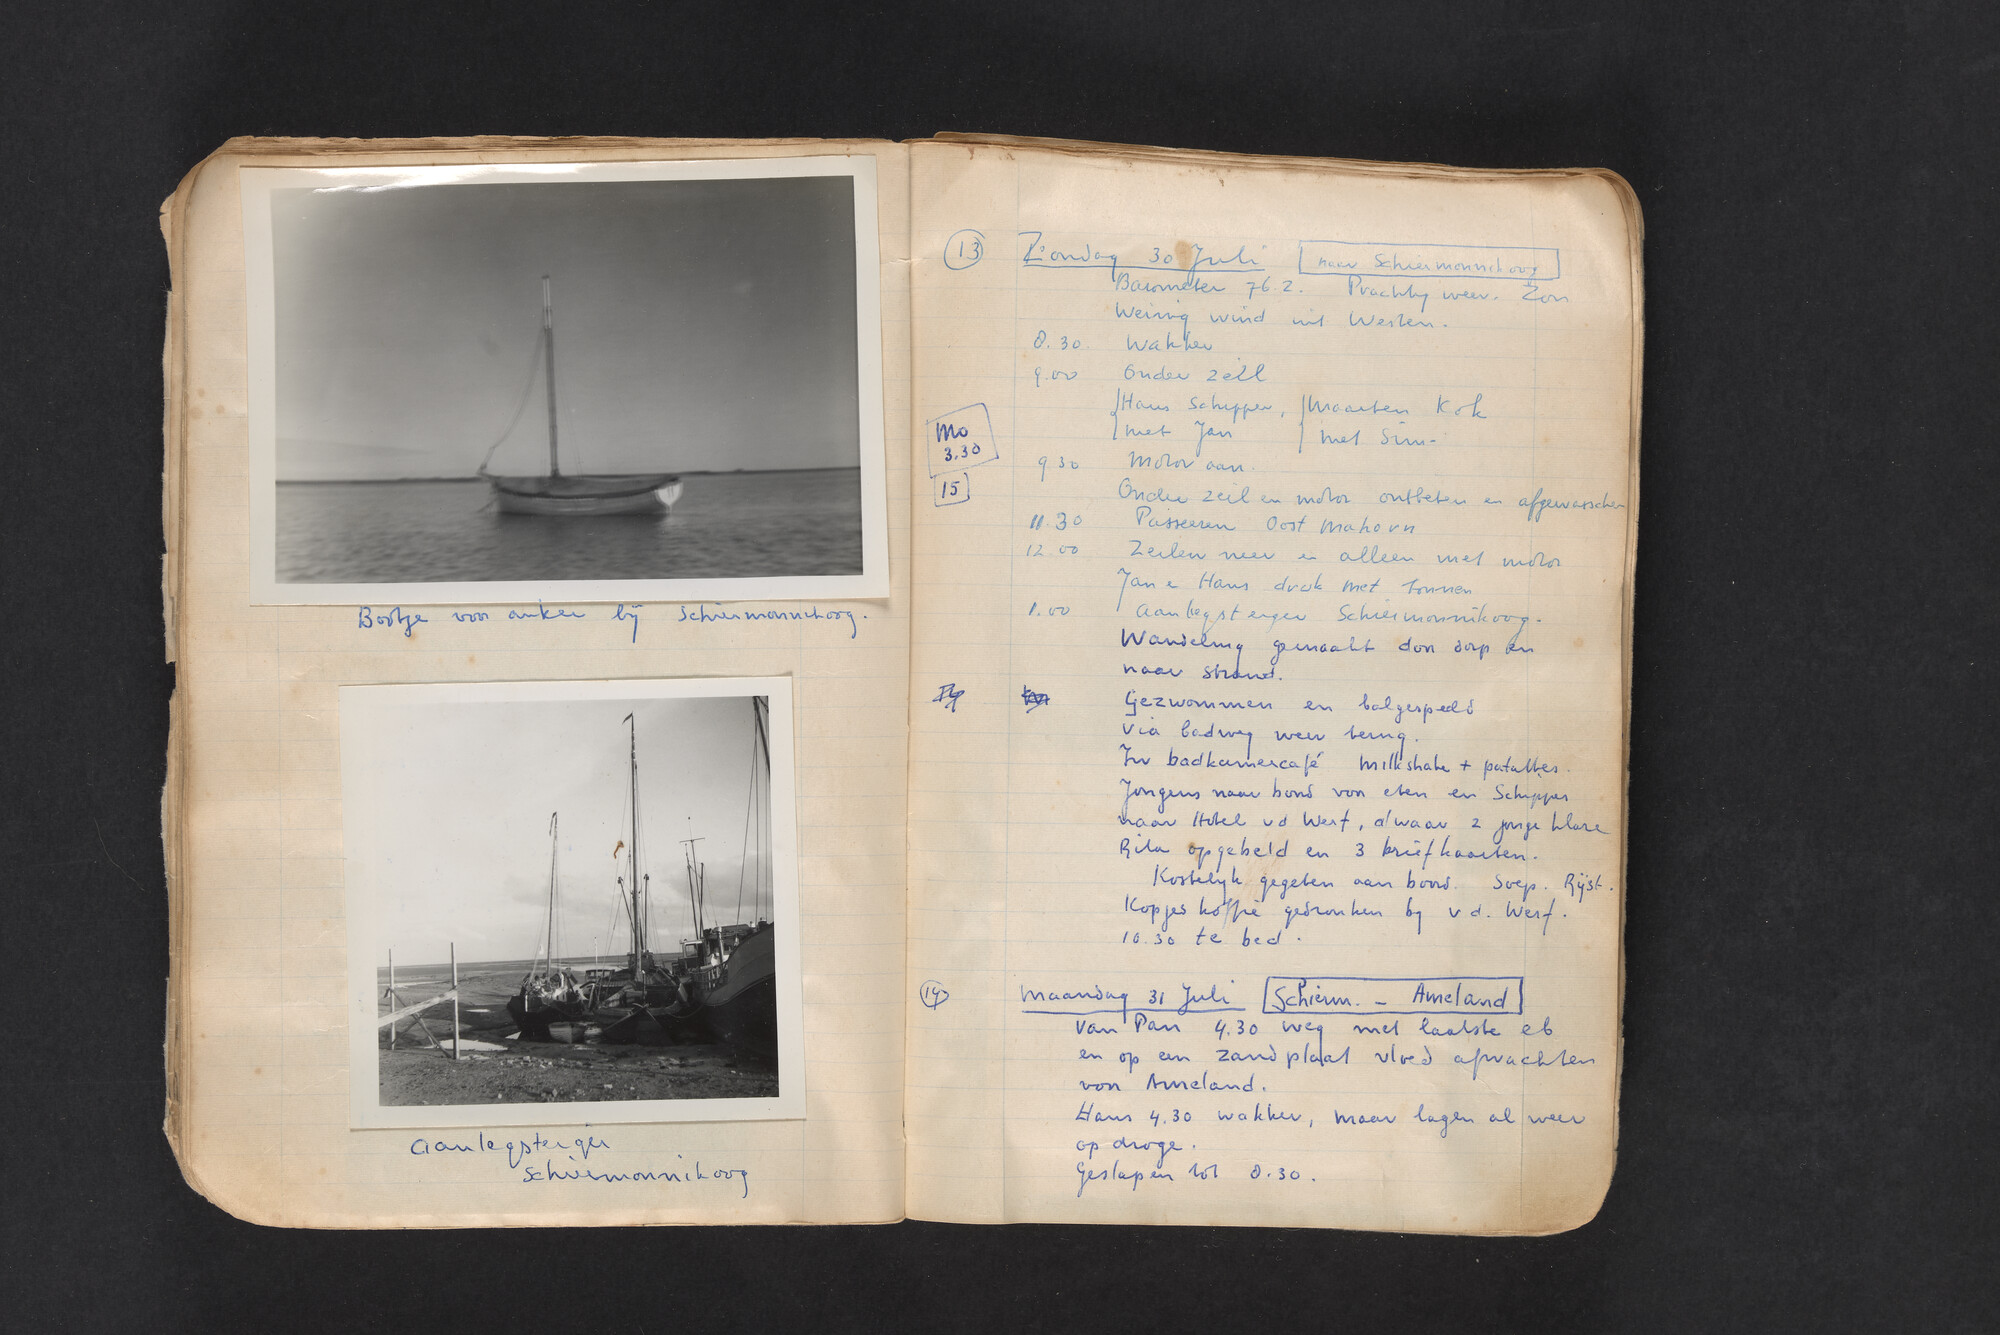 Bootje voor anker bij Schiermonnikoog.
Aanlegsteiger
Schiermonnikoog
13 Zondag 30 Juli naar Schiermonnikoog
Barometer 76.2. Prachtig weer. Zon
Weinig wind uit Westen.
8.30 Wakker
9.00 Onder zeil
Hans Schipper, Maarten Kok
met Jan met Sim-
Mo
3.30
9 30 Motor aan.
15
Onder zeil en motor ontbeten en afgewasschen
11.30 Passeeren Oost Mahorn
12.00 Zeilen neer en alleen met motor
Jan e Hans druk met tonnen
1.00 Aanlegsteiger Schiermonnikoog.
Wandeling gemaakt door dorp en
naar strand.
Gezwommen en balgespeeld
Via badweg weer terug.
In badkamercafé Milkshake + patattes.
Jongens naar boord voor eten en Schipper
naar Hotel vd Werf, alwaar 2 jonge klare
Rita opgebeld en 3 briefkaarten.
Kostelijk gegeten aan boord. Soep. Rijst.
Kopjes koffie gedronken bij v d. Werf.
10.30 te bed.
14 Maandag 31 Juli Schierm. - Ameland
Van Plan 4.30 weg met laatste eb
en op een zandplaat vloed afwachten
voor Ameland.
Hans 4.30 wakker, maar lagen al weer
op droge.
Geslapen tot 8.30.